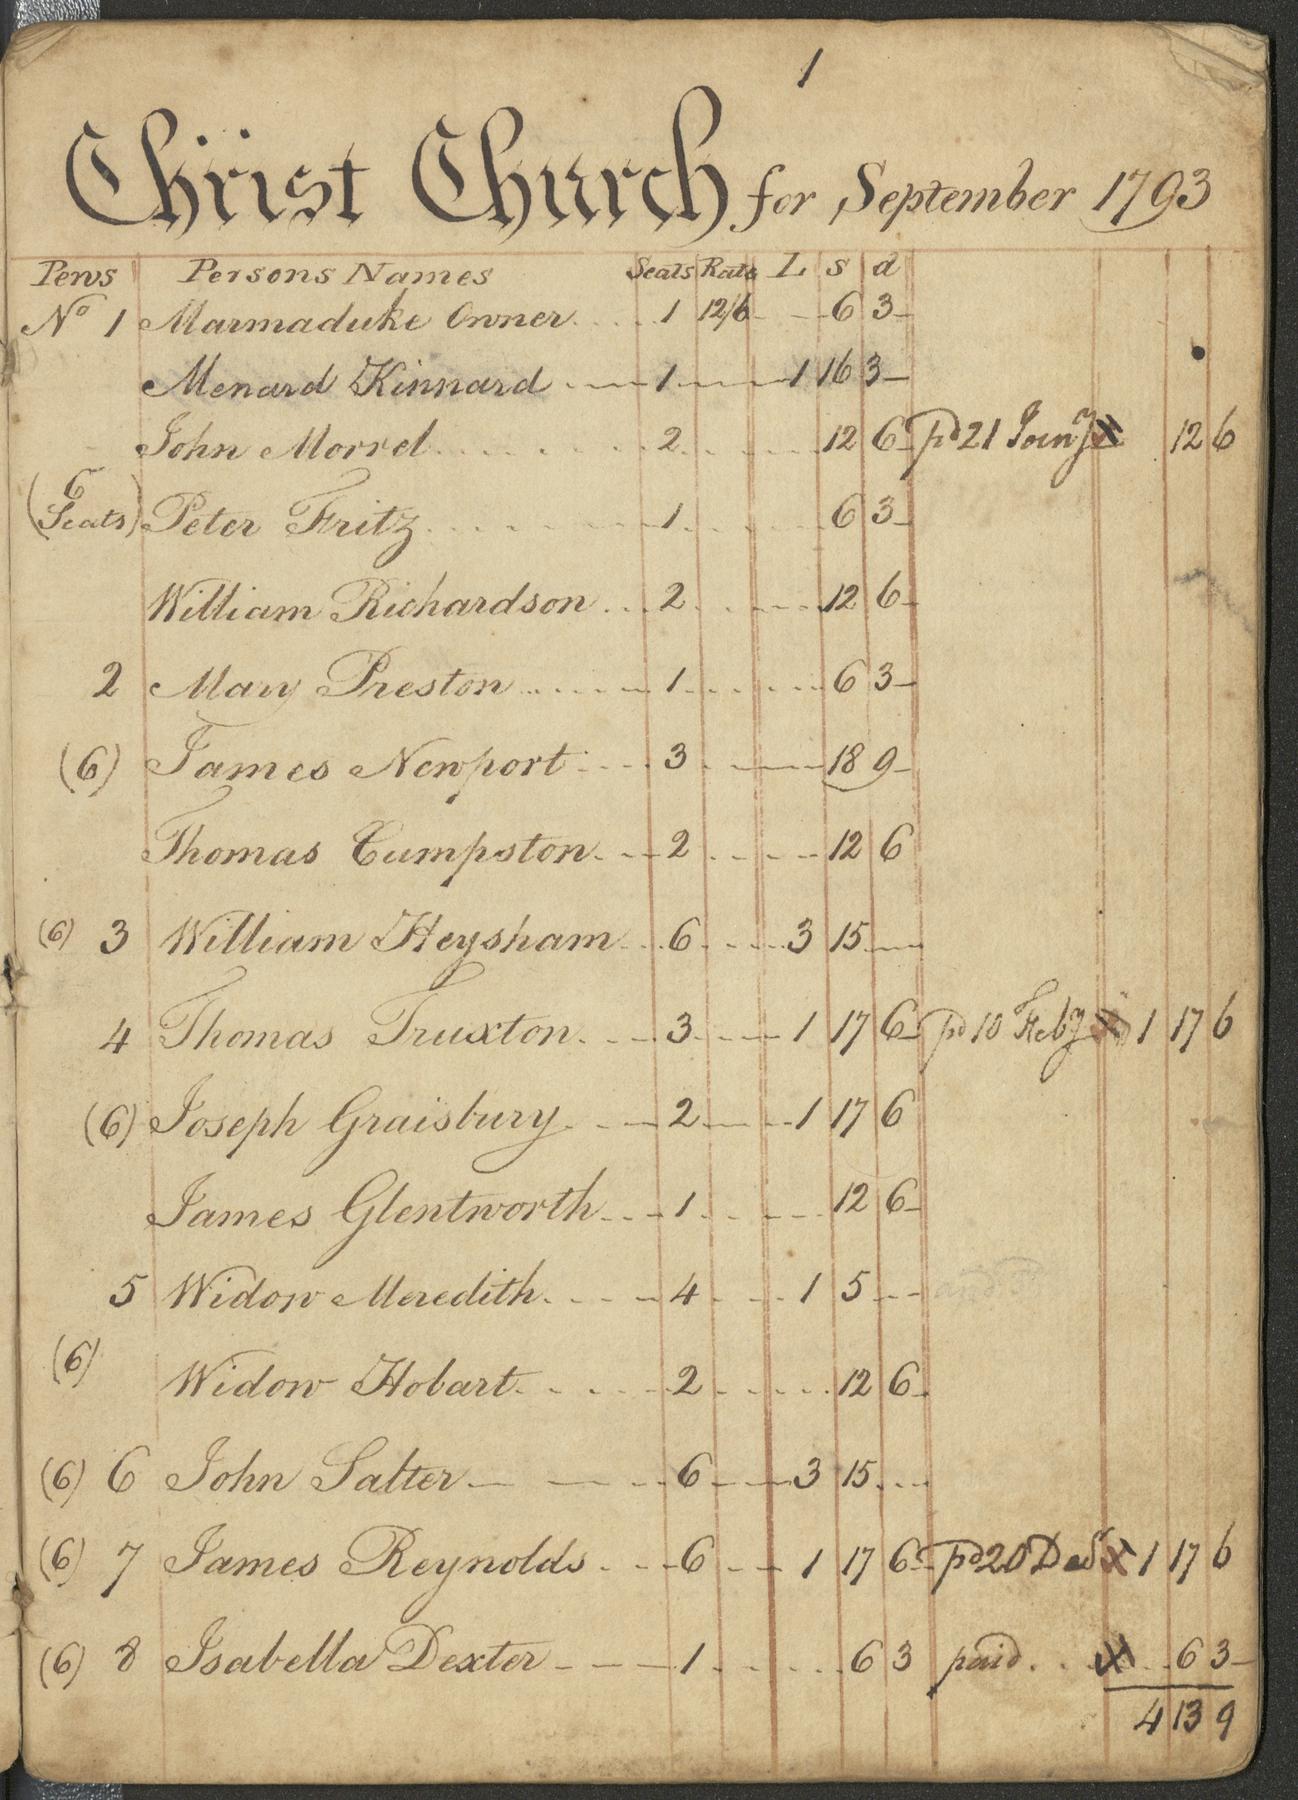 1
Christ Church for September 1793
Pews Persons Names Seats Rate L s d
No 1 Marmaduke Owner 1 12/6 6 3
Menard Kinnard 1 1 16 3
John Morrel 2 12 6 pd 21 Jany 12 6
(6 Seats) Peter Fritz 1 6 3
William Richardson 2 12 6
2 Mary Preston 1 6 3
(6) James Newport 3 18 9
Thomas Cumpston 2 12 6
(6) 3 William Heysham 6 3 15
4 Thomas Truxton 3 1 17 6 pd 10 Feby 1 17 6
(6) Joseph Graisbury 2 1 17 6
James Glentworth 1 12 6
5 Widow Meredith 4 1 5
(6) Widow Hobart 2 12 6
(6) 6 John Salter 6 3 15
(6) 7 James Reynolds 6 1 17 6 pd 20 Decr x 1 17 6
(6) 8 Isabella Dexter 1 6 3 paid x 6 3
4 13 9